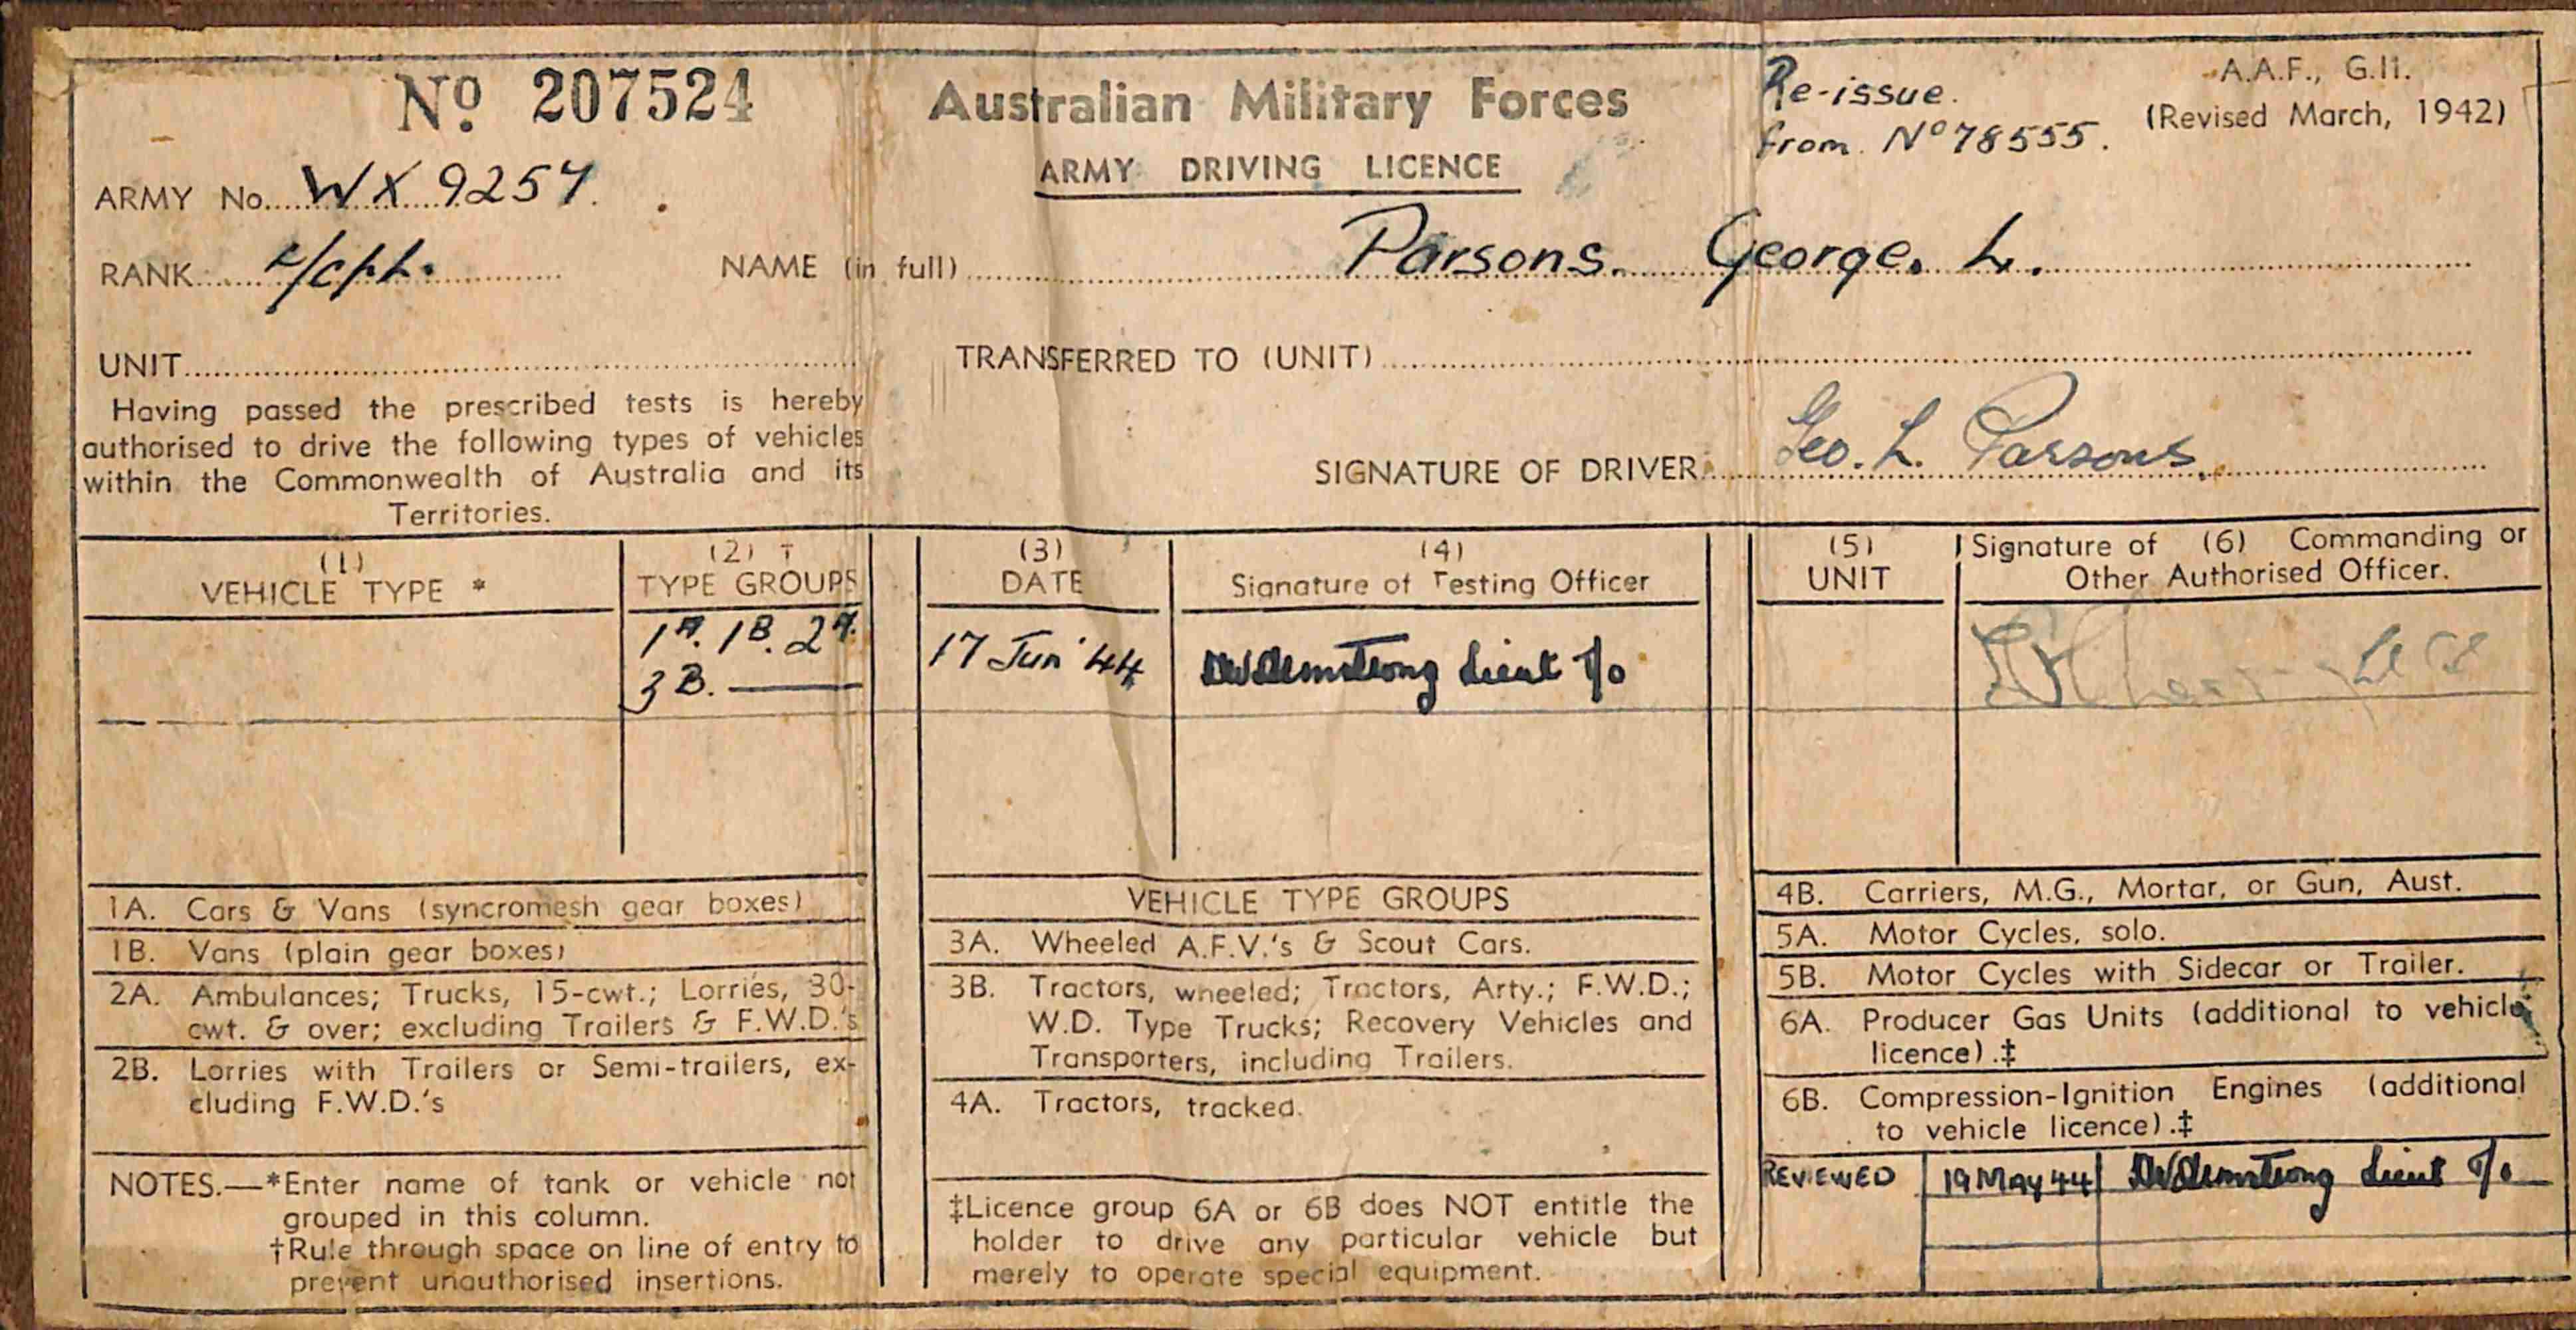 Nº 207524
Australian Military Forces
ARMY DRIVING LICENCE
Re-issue.
from Nº 78555.
A.A.F., G.11.
(Revised March, 1942)
ARMY No. WX 9257.
RANK L/Cpl.
NAME (in full) Parsons. George. L.
UNIT
TRANSFERRED TO (UNIT)
Having passed the prescribed tests is hereby
authorised to drive the following types of vehicles
within the Commonwealth of Australia and its
Territories.
SIGNATURE OF DRIVER Geo. L. Parsons.
(1)
VEHICLE TYPE *
(2) †
TYPE GROUPS
1A. 1B. 2A.
3B.
(3)
DATE
17 Jun 44
(4)
Signature of Testing Officer
Armstrong Lieut T/o
(5)
UNIT
Signature of (6) Commanding or
Other Authorised Officer.
1A. Cars & Vans (syncromesh gear boxes)
1B. Vans (plain gear boxes)
2A. Ambulances; Trucks, 15-cwt.; Lorries, 30-
cwt. & over; excluding Trailers & F.W.D.'s
2B. Lorries with Trailers or Semi-trailers, ex-
cluding F.W.D.'s
NOTES.—*Enter name of tank or vehicle not
grouped in this column.
†Rule through space on line of entry to
prevent unauthorised insertions.
VEHICLE TYPE GROUPS
3A. Wheeled A.F.V.'s & Scout Cars.
3B. Tractors, wheeled; Tractors, Arty.; F.W.D.;
W.D. Type Trucks; Recovery Vehicles and
Transporters, including Trailers.
4A. Tractors, tracked.
‡Licence group 6A or 6B does NOT entitle the
holder to drive any particular vehicle but
merely to operate special equipment.
4B. Carriers, M.G., Mortar, or Gun, Aust.
5A. Motor Cycles, solo.
5B. Motor Cycles with Sidecar or Trailer.
6A. Producer Gas Units (additional to vehicle
licence).‡
6B. Compression-Ignition Engines (additional
to vehicle licence).‡
REVIEWED 19 May 44 Armstrong Lieut T/o